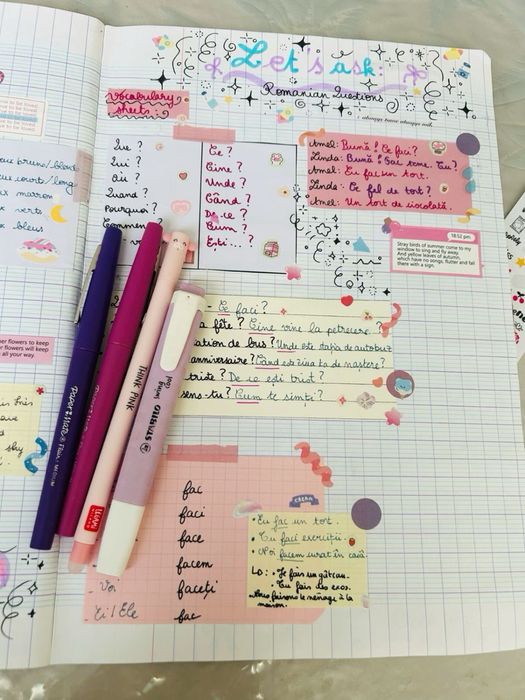 Let's ask:
Romanian Questions
always have always will.
vocabulary
sheets:
Que ?
Qui ?
Où ?
Quand ?
Pourquoi ?
Commen
Ce ?
Cine ?
Unde ?
Când ?
De ce ?
Cum ?
Ești... ?
Amel: Bună! Ce faci ?
Linda: Bună! Fac teme. Tu?
Amel: Eu fac un tort.
Linda: Ce fel de tort ?
Amel: Un tort de ciocolată.
18:52 pm
Stray birds of summer come to my
window to sing and fly away.
And yellow leaves of autumn,
which have no songs, flutter and fall
there with a sign.
Ce faci ?
a fête ? Cine vine la petrecere ?
ation de bus ? Unde este stația de autobuz
anniversaire ? Când este ziua ta de naștere?
triste ? De ce ești trist?
sens-tu ? Cum te simți ?
fac
faci
face
facem
Voi faceți
Ei / Ele fac
• Eu fac un tort.
• Tu faci exerciții.
• Noi facem curat în casă.
LD : • Je fais un gâteau.
• Tu fais des exos.
• Nous faisons le ménage à la
maison.
yeux bruns/blonds
eux court/long
x marron
x verts
x bleus
er flowers to keep
r flowers will keep
all your way.
Paper Mate Flair. MEDIUM
Paper Mate
THINK PINK
Legami
MILANO
OLLIVUS